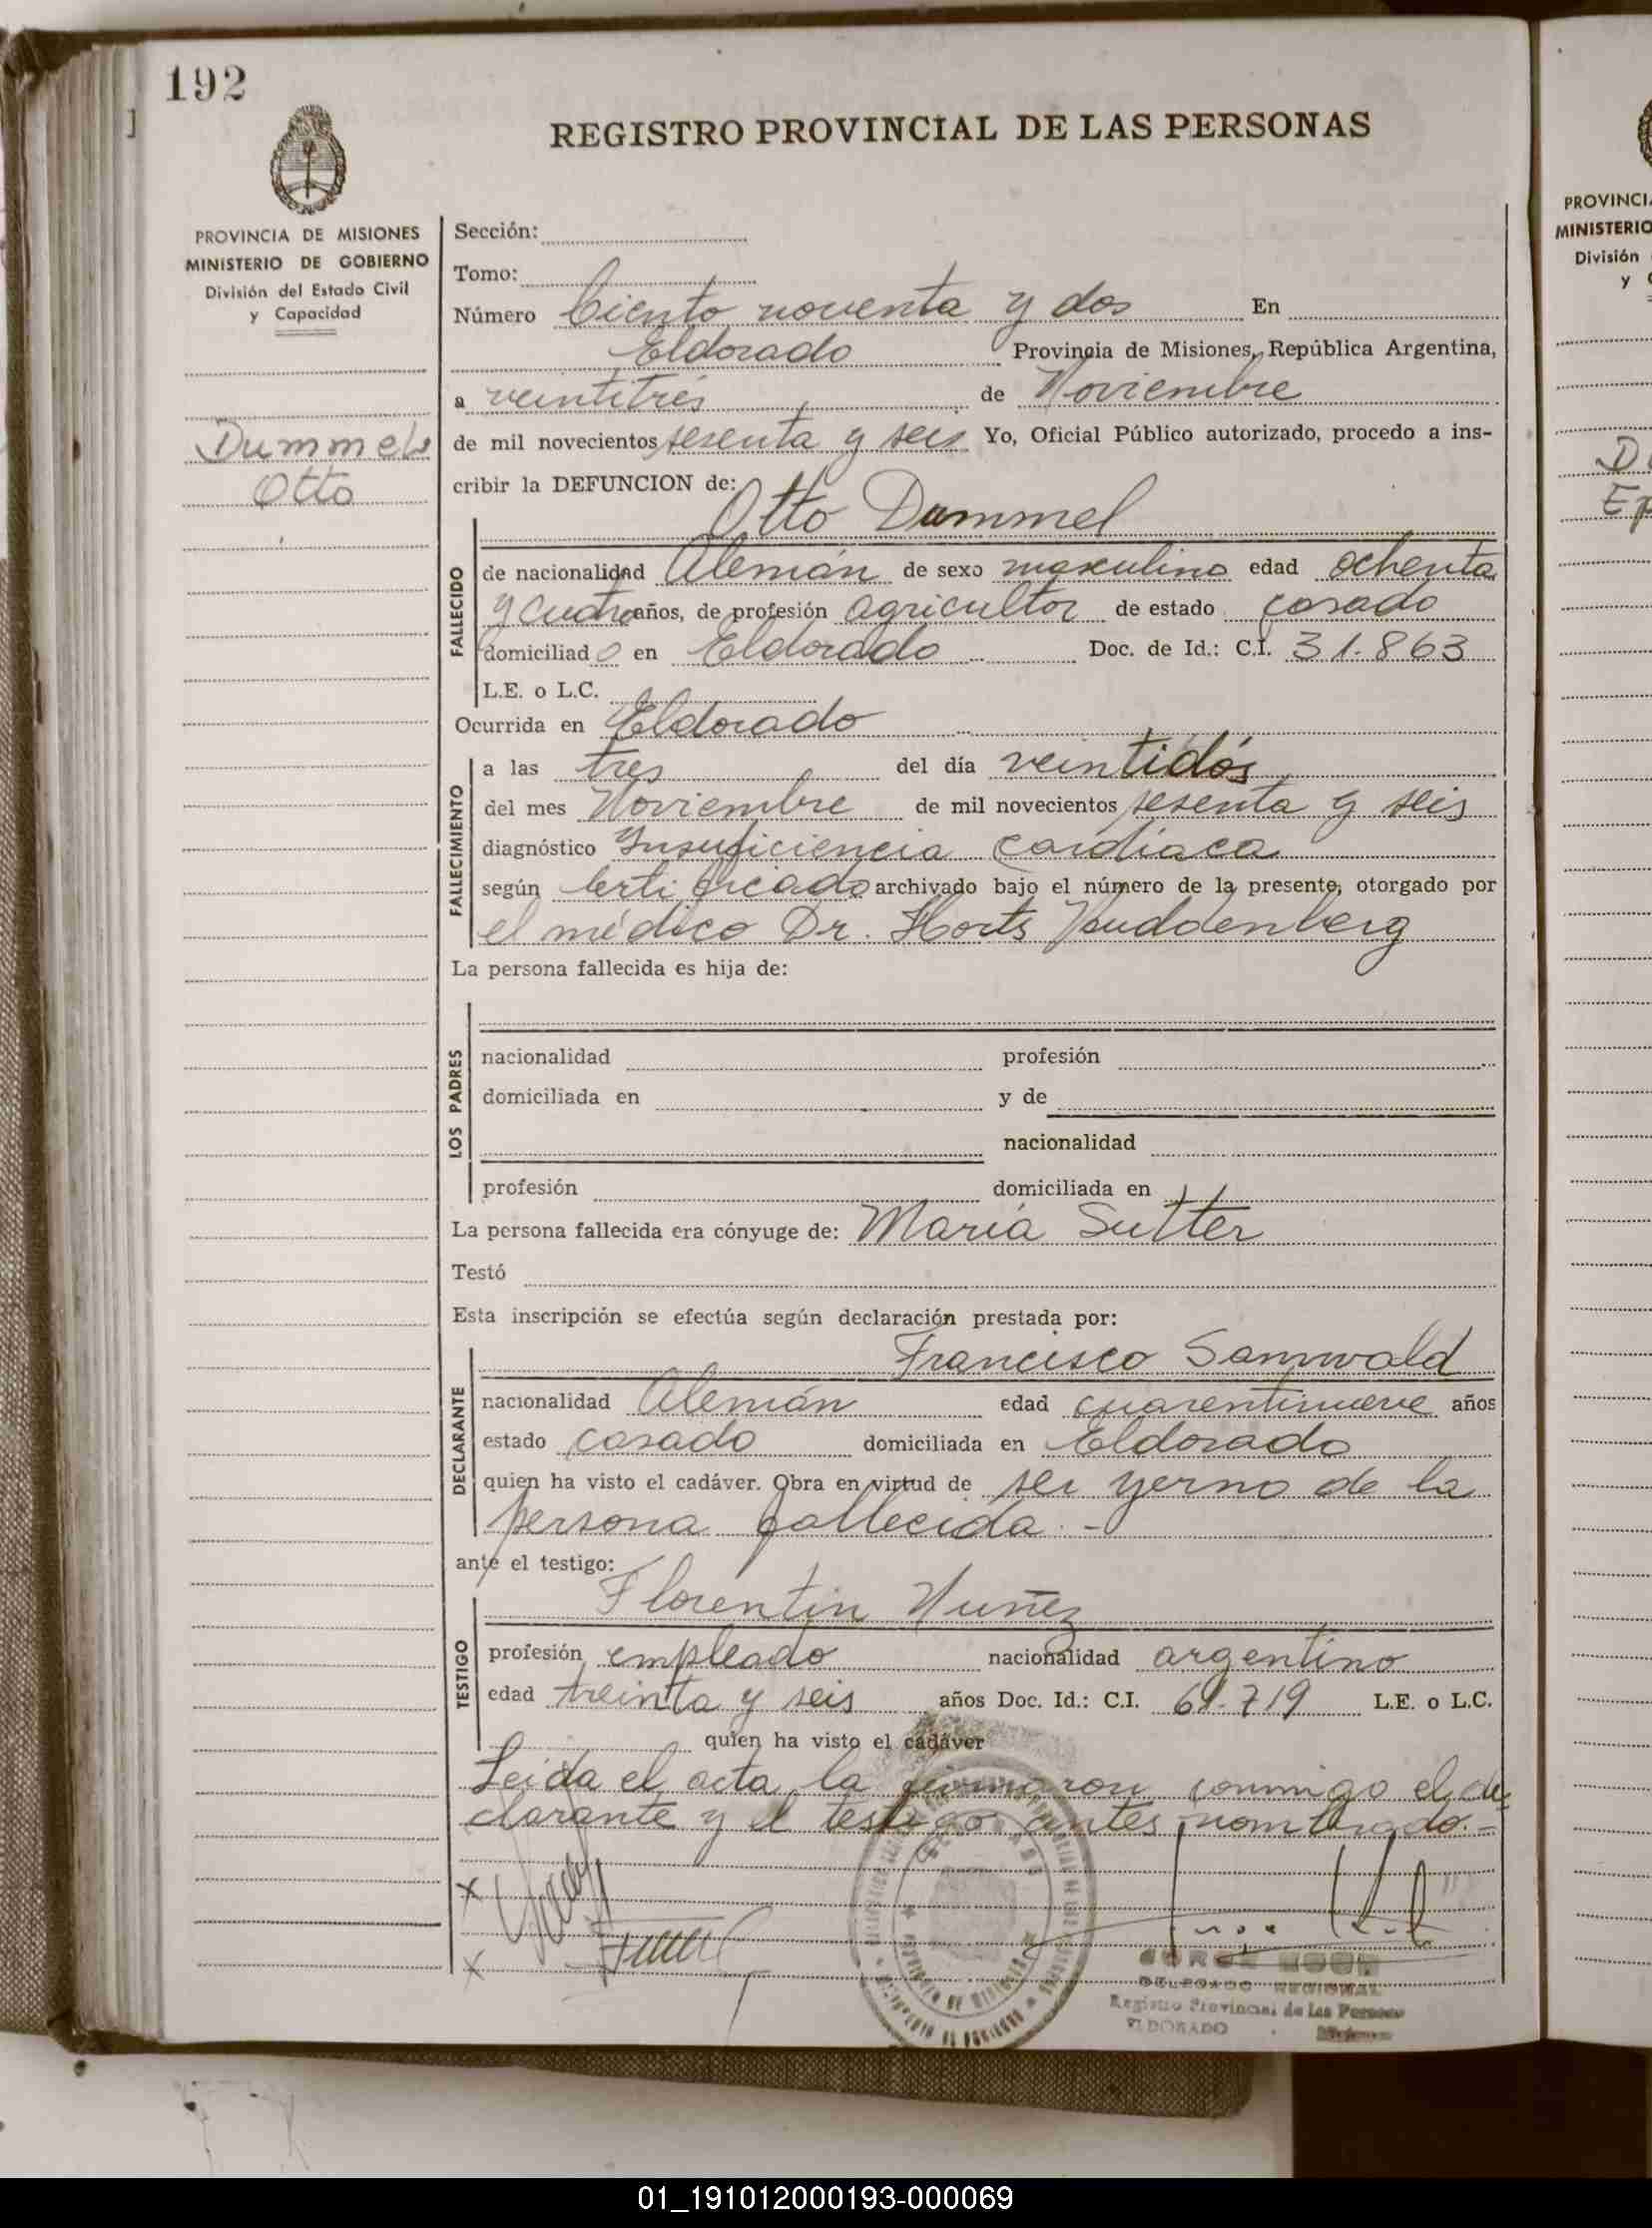 192
REGISTRO PROVINCIAL DE LAS PERSONAS
PROVINCIA DE MISIONES
MINISTERIO DE GOBIERNO
División del Estado Civil
y Capacidad
Dummel
Otto
Sección:
Tomo:
Número Ciento noventa y dos En
Eldorado Provincia de Misiones, República Argentina,
a veintitrés de Noviembre
de mil novecientos sesenta y seis Yo, Oficial Público autorizado, procedo a ins-
cribir la DEFUNCION de:
Otto Dummel
FALLECIDO
de nacionalidad Alemán de sexo masculino edad ochenta
y cuatro años, de profesión agricultor de estado casado
domiciliado en Eldorado Doc. de Id.: C.I. 31.863
L.E. o L.C.
Ocurrida en Eldorado
FALLECIMIENTO
a las tres del día veintidós
del mes Noviembre de mil novecientos sesenta y seis
diagnóstico Insuficiencia cardíaca
según certificado archivado bajo el número de la presente, otorgado por
el médico Dr. Horts
La persona fallecida es hija de:
LOS PADRES
nacionalidad profesión
domiciliada en y de
nacionalidad
profesión domiciliada en
La persona fallecida era cónyuge de: María Sutter
Testó
Esta inscripción se efectúa según declaración prestada por:
Francisco Sannwald
DECLARANTE
nacionalidad Alemán edad cuarentinueve años
estado casado domiciliada en Eldorado
quien ha visto el cadáver. Obra en virtud de ser yerno de la
persona fallecida.-
ante el testigo:
Florentin Nuñez
TESTIGO
profesión empleado nacionalidad argentino
edad treinta y seis años Doc. Id.: C.I. 61.719 L.E. o L.C.
quien ha visto el cadáver
Leida el acta, la firmaron conmigo el de-
clarante y el testigo antes nombrado.-
DELEGADO REGIONAL
Registro Provincial de las Personas
ELDORADO Misiones
PROVINCIA
MINISTERIO
División
y
01_191012000193-000069